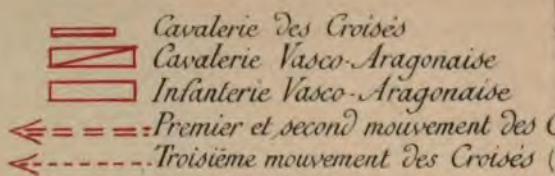 Cavalerie des Croisés
Cavalerie Vasco-Aragonaise
Infanterie Vasco-Aragonaise
Premier et second mouvement des C
Troisième mouvement des Croisés (